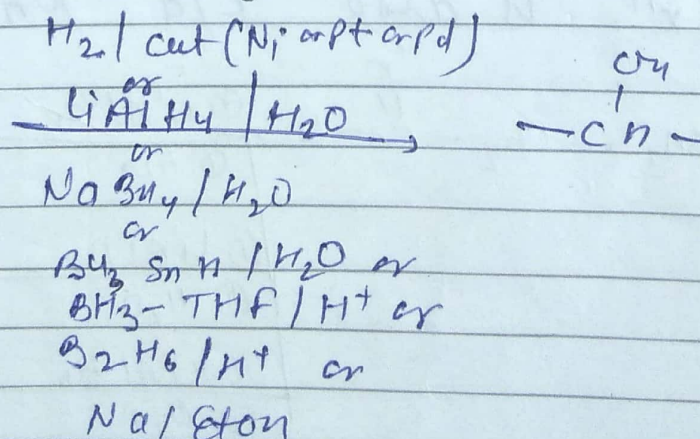 H2 / cat (Ni or pt or pd)
OH
or
LiAlH4 / H2O
— CH —
or
NaBH4 / H2O
or
BU3 Sn H / H2O or
BH3 - THF / H+ or
B2H6 / H+ or
Na / EtOH